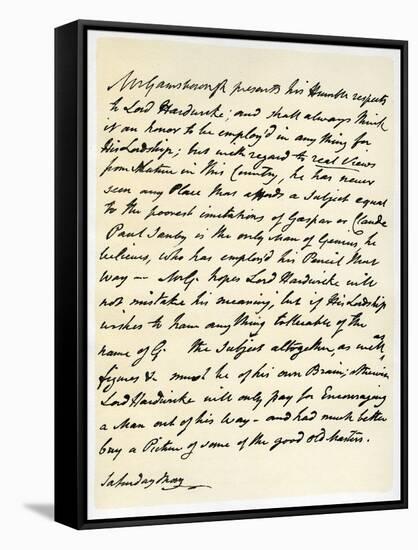 Mr Gainsborough presents his Humble respects
to Lord Hardwicke; and shall always think
it an honor to be employ'd in any thing for
His Lordship; but with regard to real Views
from Nature in this Country, he has never
seen any Place that affords a Subject equal
to the poorest imitations of Gaspar or Claude
Paul Sanby is the only Man of Genius, he
believes, who has employ'd his Pencil that
Way — Mr G. hopes Lord Hardwicke will
not mistake his meaning, but if His Lordship
wishes to have any thing tollerable of the
name of G. the Subject altogether, as well as
figures &c must be of his own Brain; otherwise
Lord Hardwicke will only pay for Encouraging
a Man out of his Way — and had much better
buy a Picture of some of the good old Masters.
Saturday Morg